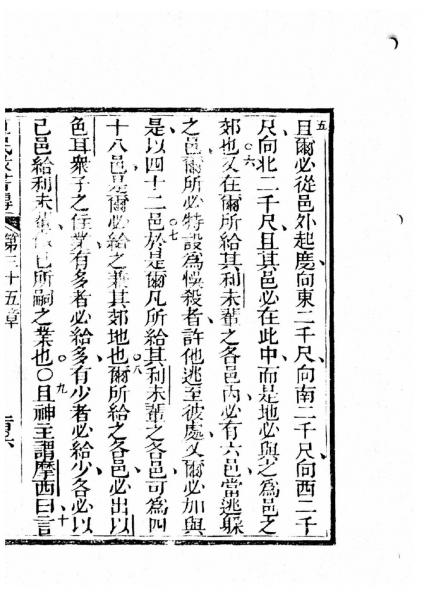 五且爾必從邑外起度向東二千尺向南二千尺向西二千
尺向北二千尺且其邑必在此中而是地必與之為邑之
郊也六又在爾所給其利未輩之各邑內必有六邑當逃躲
之邑爾所必特設為悞殺者許他逃至彼處又爾必加與
是以四十二邑七於是爾凡所給其利未輩之各邑可為四
十八邑是爾必給之兼其郊地也八爾所給之各邑必出以
色耳衆子之住業有多者必給多有少者必給少各必以
己邑給利未輩依已所嗣之業也〇九且神主謂摩西曰十言
第三十五章